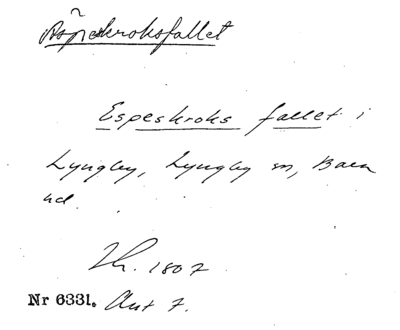 Äspekroksfallet
Espeskroks fallet i
Lyngby, Lyngby sn, Bara
hd.
Lh. 1807.
Nr 6331. Akt 7.